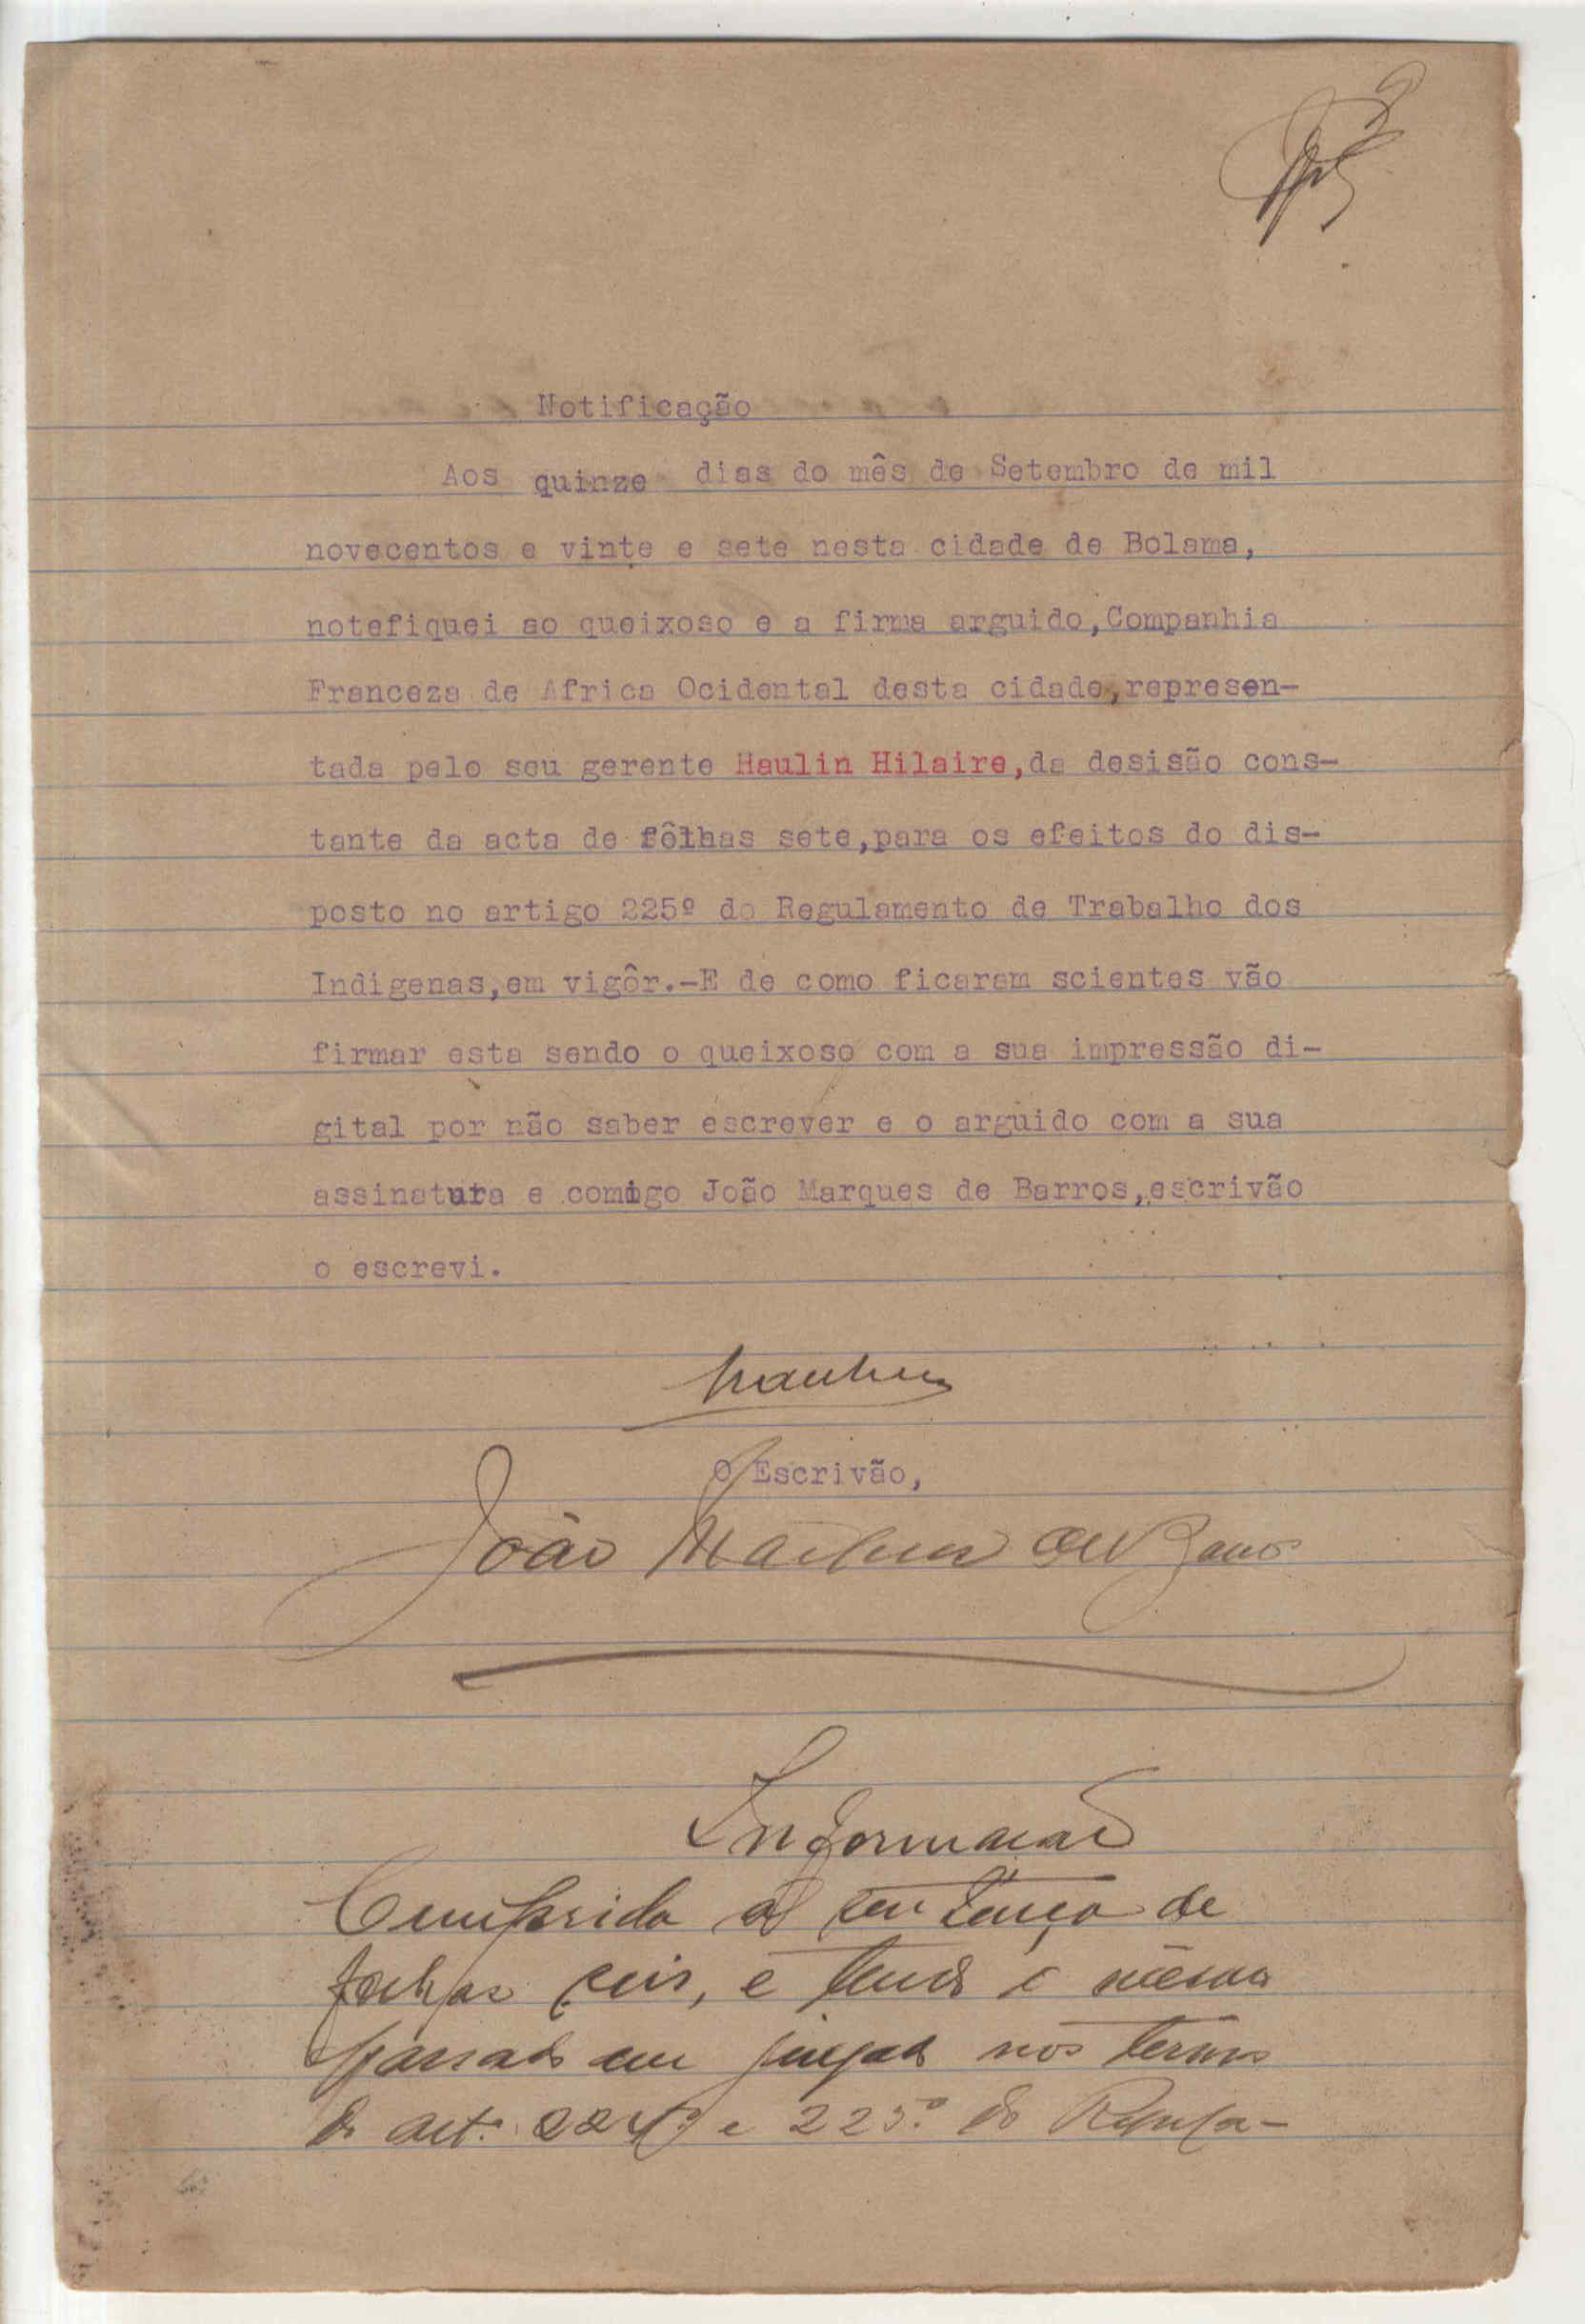 Notificação
Aos quinze dias do mês de Setembro de mil
novecentos e vinte e sete nesta cidade de Bolama,
notefiquei ao queixoso e a firma arguido,Companhia
Franceza de Africa Ocidental desta cidade,represen-
tada pelo seu gerente Haulin Hilaire,da desisão cons-
tante da acta de fôlhas sete,para os efeitos do dis-
posto no artigo 225º do Regulamento de Trabalho dos
Indigenas,em vigôr.-E de como ficaram scientes vão
firmar esta sendo o queixoso com a sua impressão di-
gital por não saber escrever e o arguido com a sua
assinatura e comigo João Marques de Barros,escrivão
o escrevi.
O Escrivão,
João Marques de Barros
Informação
Cumprida a sentença de
folhas seis, e tendo a mesma
passado em julgado nos termos
do art.º 224º e 225.º do Regula-